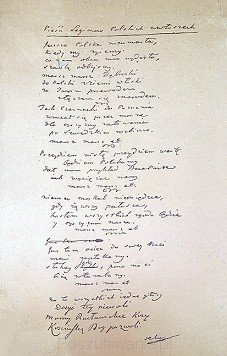 Pieśń Legionów Polskich we Włoszech
Jeszcze Polska nie umarła,
kiedy my żyjemy
co nam obca moc wydarła,
szablą odbijemy.
marsz marsz Dąbrowski
do Polski z ziemi włoski
za Twoim przewodem
złączem się z narodem.
Jak Czarniecki do Poznania
wracał się przez morze
dla oyczyzny ratowania
po szwedzkim rozbiorze.
marsz marsz etc
Przejdziem Wisłę przejdziem Wartę
będziem Polakami
dał nam przykład Bonaparte
jak zwyciężać mamy
marsz marsz etc
Niemiec moskal nie osiędzie,
gdy jąwszy pałasza,
hasłem wszystkich zgoda będzie
y oyczyzna nasza
marsz marsz etc
Już tam ociec do swey Basi
mówi zapłakany
słuchay jeno, pono nasi
biją w tarabany
marsz marsz etc
Na to wszystkich jedne głosy
Dosyć tey niewoli
mamy Racławickie Kosy
Kościuszkę Bóg pozwoli